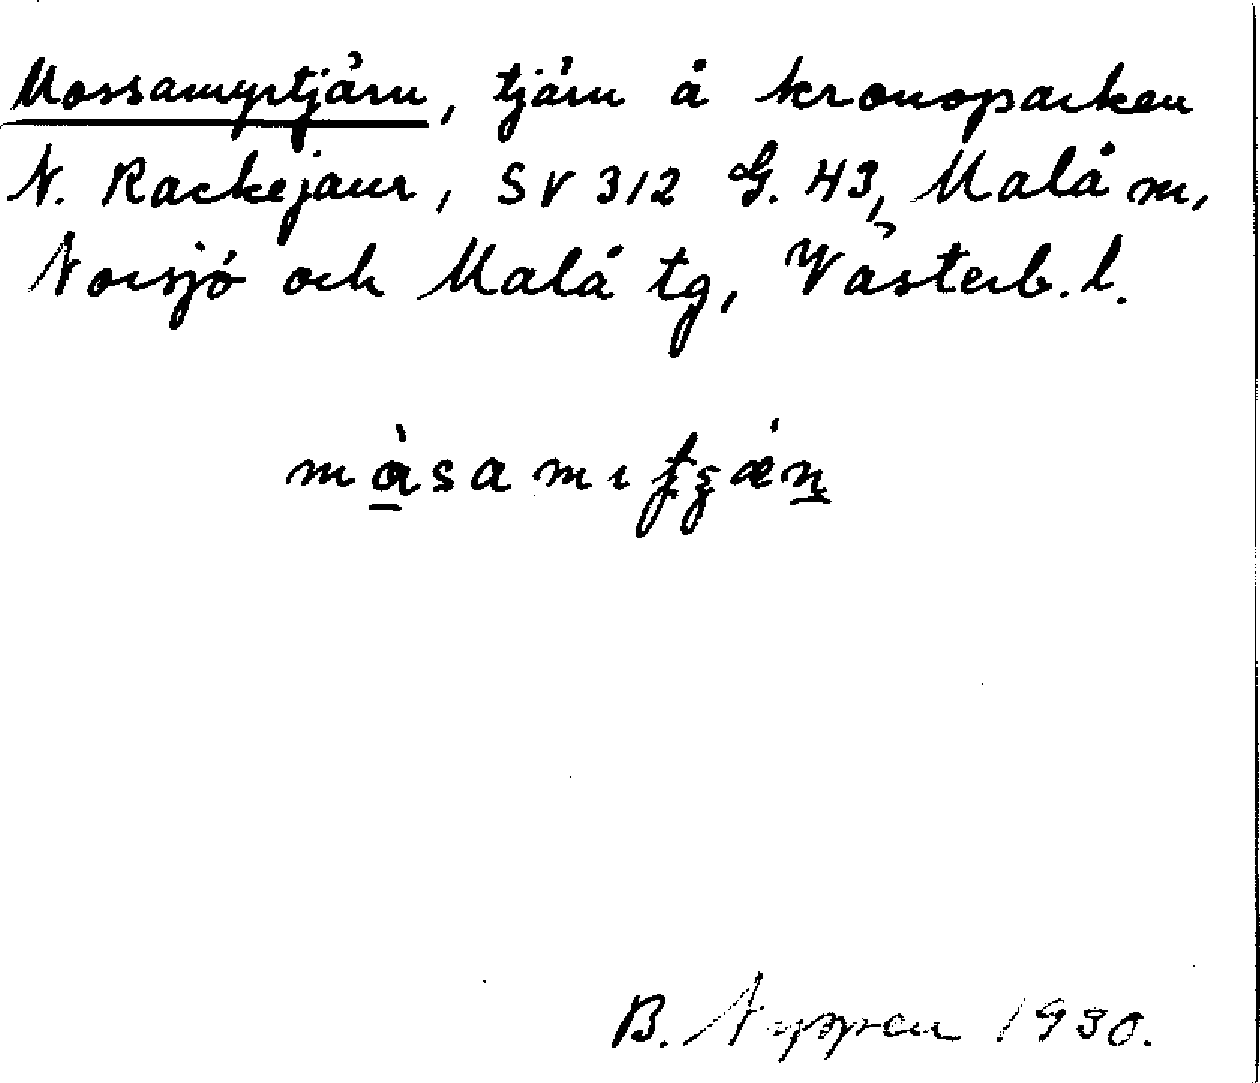 Mossamyrtjärn, tjärn å kronoparken
N. Rackejaur, SV 312 G. 43, Malå m,
Norsjö och Malå tg, Västerb. l.
B. Nyppen 1930.